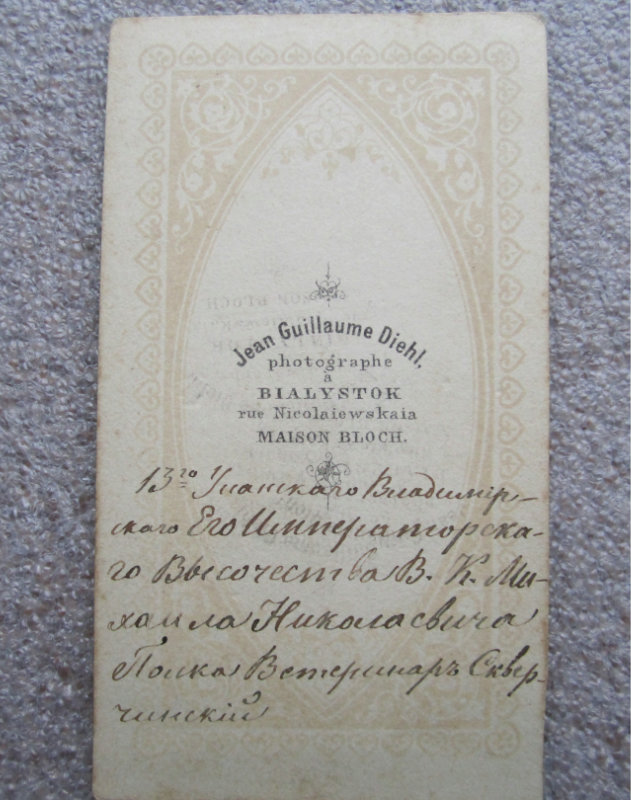 Jean Guillaume Diehl,
photographe
à
BIALYSTOK
rue Nicolaiewskaia
MAISON BLOCH.
13го Уланскаго Владимір-
скаго Его Императорска-
го Высочества В. К. Ми-
хаила Николаевича
Полка Ветеринаръ Сквер-
чинскій